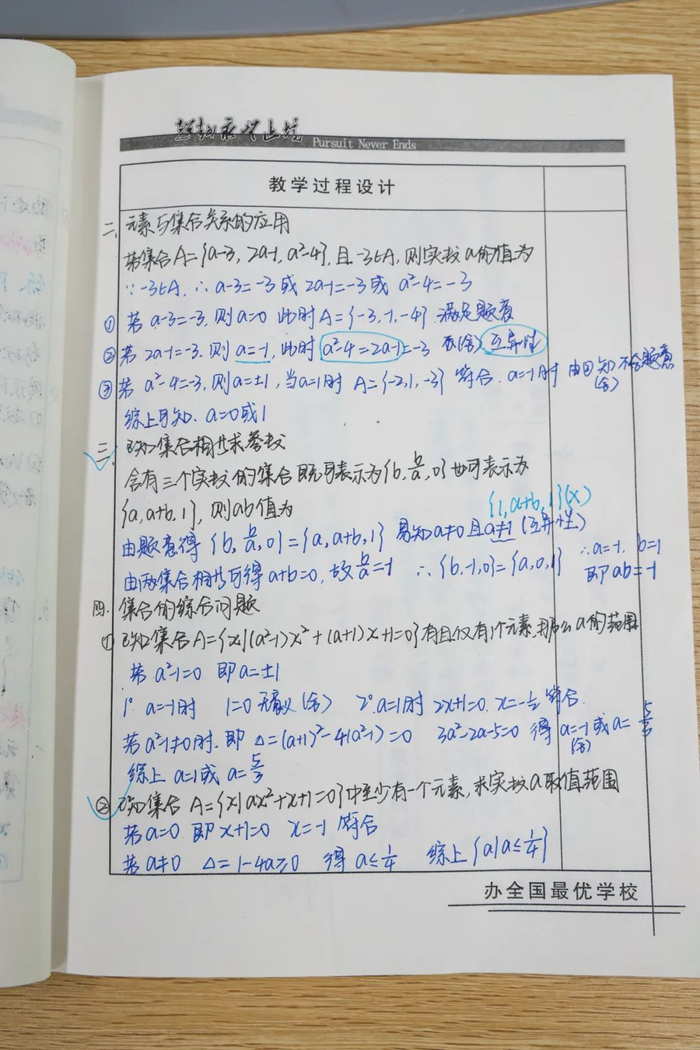 超越永无止境
Pursuit Never Ends
教学过程设计
二、元素与集合关系的应用
若集合A={a-3, 2a-1, a²-4}, 且-3∈A, 则实数a的值为
∵-3∈A, ∴a-3=-3或2a-1=-3或a²-4=-3
① 若a-3=-3, 则a=0 此时A={-3,-1,-4} 满足题意
② 若2a-1=-3, 则a=-1, 此时a²-4=2a-1=-3 不(舍)互异性
③ 若a²-4=-3, 则a=±1, 当a=1时 A={-2,1,-3} 符合. a=-1时 由②知不合题意(舍)
综上可知. a=0或1
三、已知集合相等求参数
含有三个实数的集合既可表示为{b, b/a, 0}也可表示为
{a, a+b, 1}, 则ab值为
{1, a+b, 1}(×)
由题意得{b, b/a, 0}={a, a+b, 1} 易知a≠0且a≠1(互异性)
由两集合相等可得a+b=0, 故b/a=-1 ∴{b,-1,0}={a,0,1} ∴a=-1, b=1
即ab=-1
四. 集合的综合问题
① 已知集合A={x|(a²-1)x²+(a+1)x+1=0}有且仅有1个元素, 那么a的范围
若a²-1=0 即a=±1
1° a=-1时 1=0 无意义(舍) 2° a=1时 2x+1=0. x=-1/2 符合.
若a²-1≠0时. 即△=(a+1)²-4(a²-1)=0 3a²-2a-5=0 得a=-1(舍)或a=5/3
综上a=1或a=5/3
② 已知集合A={x|ax²+x+1=0}中至少有一个元素, 求实数a取值范围
若a=0 即x+1=0 x=-1 符合
若a≠0 △=1-4a≥0 得a≤1/4 综上{a|a≤1/4}
办全国最优学校